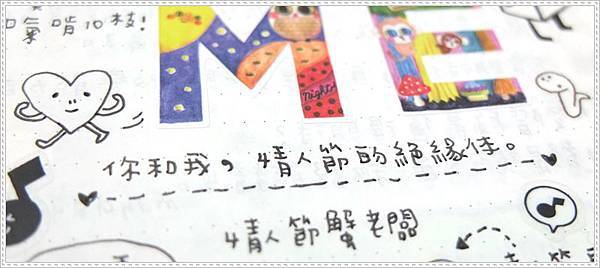 口氣啃10枝!
ME
nights
你和我，情人節的絕緣佳。
情人節蟹老闆